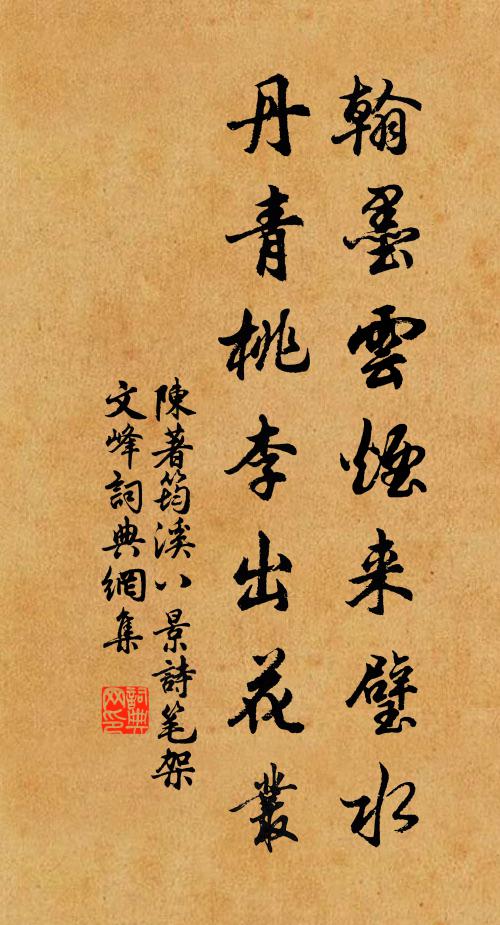 翰墨雲煙来璧水
丹青桃李出花叢
陳著筠溪八景詩笔架
文峰詞典網集
詞典网印